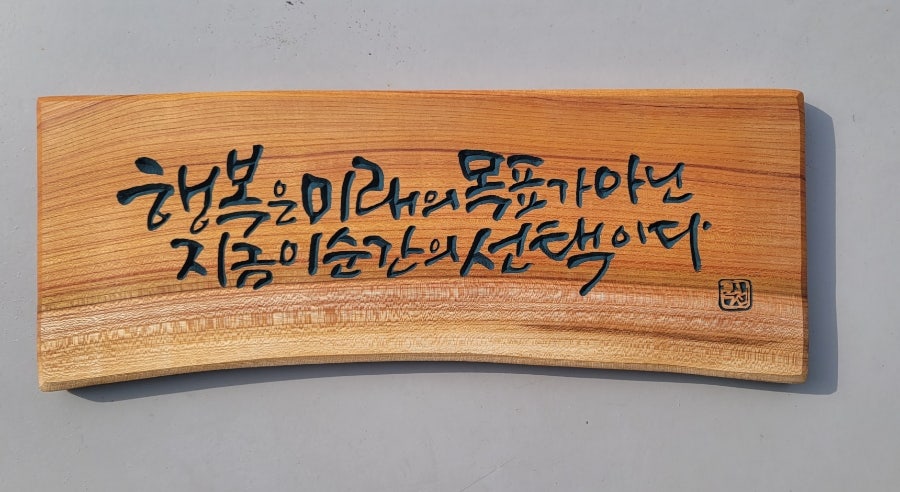 행복은 미래의 목표가 아닌
지금 이 순간의 선택이다.